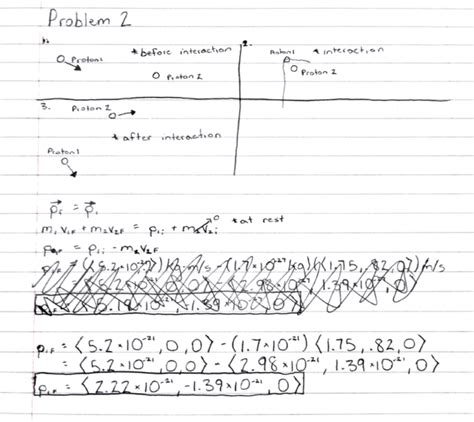 Problem 2
1. * before interaction
Proton 1
Proton 2
2. Proton 1 * interaction
Proton 2
3. Proton 2
* after interaction
Proton 1
p⃗f = p⃗i
m₁v₁F + m₂v₂F = p₁i + m₂v₂i → 0 * at rest
p₁F = p₁i - m₂v₂F
p₁F = ⟨5.2×10⁻²¹, 0, 0⟩ - (1.7×10⁻²⁷)⟨1.75, .82, 0⟩
= ⟨5.2×10⁻²¹, 0, 0⟩ - ⟨2.98×10⁻²¹, 1.39×10⁻²¹, 0⟩
p₁F = ⟨2.22×10⁻²¹, -1.39×10⁻²¹, 0⟩